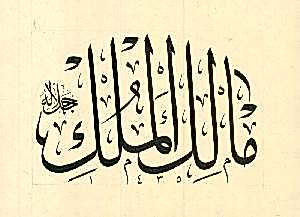 مَالِكُ الْمُلْكِ
جل جلاله